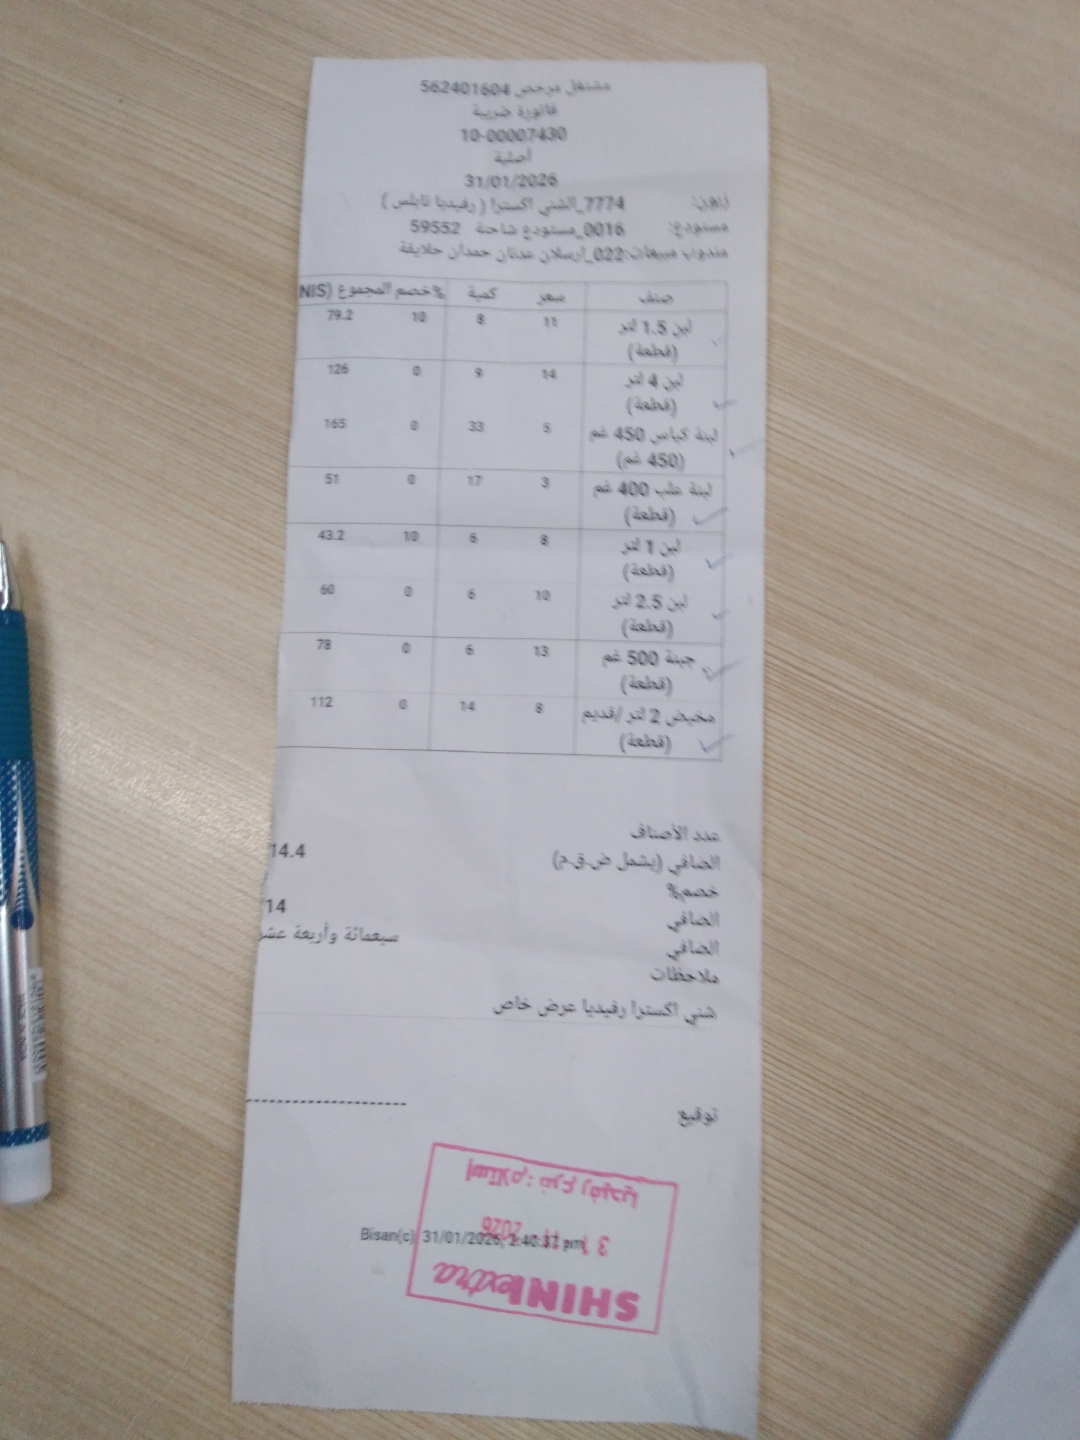 مشتغل مرخص 562401604
فاتورة ضريبة
10-00007430
أصلية
31/01/2026
زبون: 7774_الشني اكسترا ( رفيديا نابلس )
مستودع: 0016_مستودع شاحنة 59552
مندوب مبيعات:022_ارسلان عدنان حمدان حلايقة
صنف سعر كمية %خصم المجموع (NIS
لبن 1.5 لتر 11 8 10 79.2
(قطعة)
لبن 4 لتر 14 9 0 126
(قطعة)
لبنة كياس 450 غم 5 33 0 165
(450 غم)
لبنة علب 400 غم 3 17 0 51
(قطعة)
لبن 1 لتر 8 6 10 43.2
(قطعة)
لبن 2.5 لتر 10 6 0 60
(قطعة)
جبنة 500 غم 13 6 0 78
(قطعة)
مخيض 2 لتر /قديم 8 14 0 112
(قطعة)
عدد الأصناف
الصافي (يشمل ض.ق.م) 14.4
خصم%
الصافي 14
الصافي سبعمائة وأربعة عشر
ملاحظات
شني اكسترا رفيديا عرض خاص
توقيع
إستلام : فرع رفيديا
2026
Bisan(c) 31/01/2026, 2:40:37 pm
SHINI extra